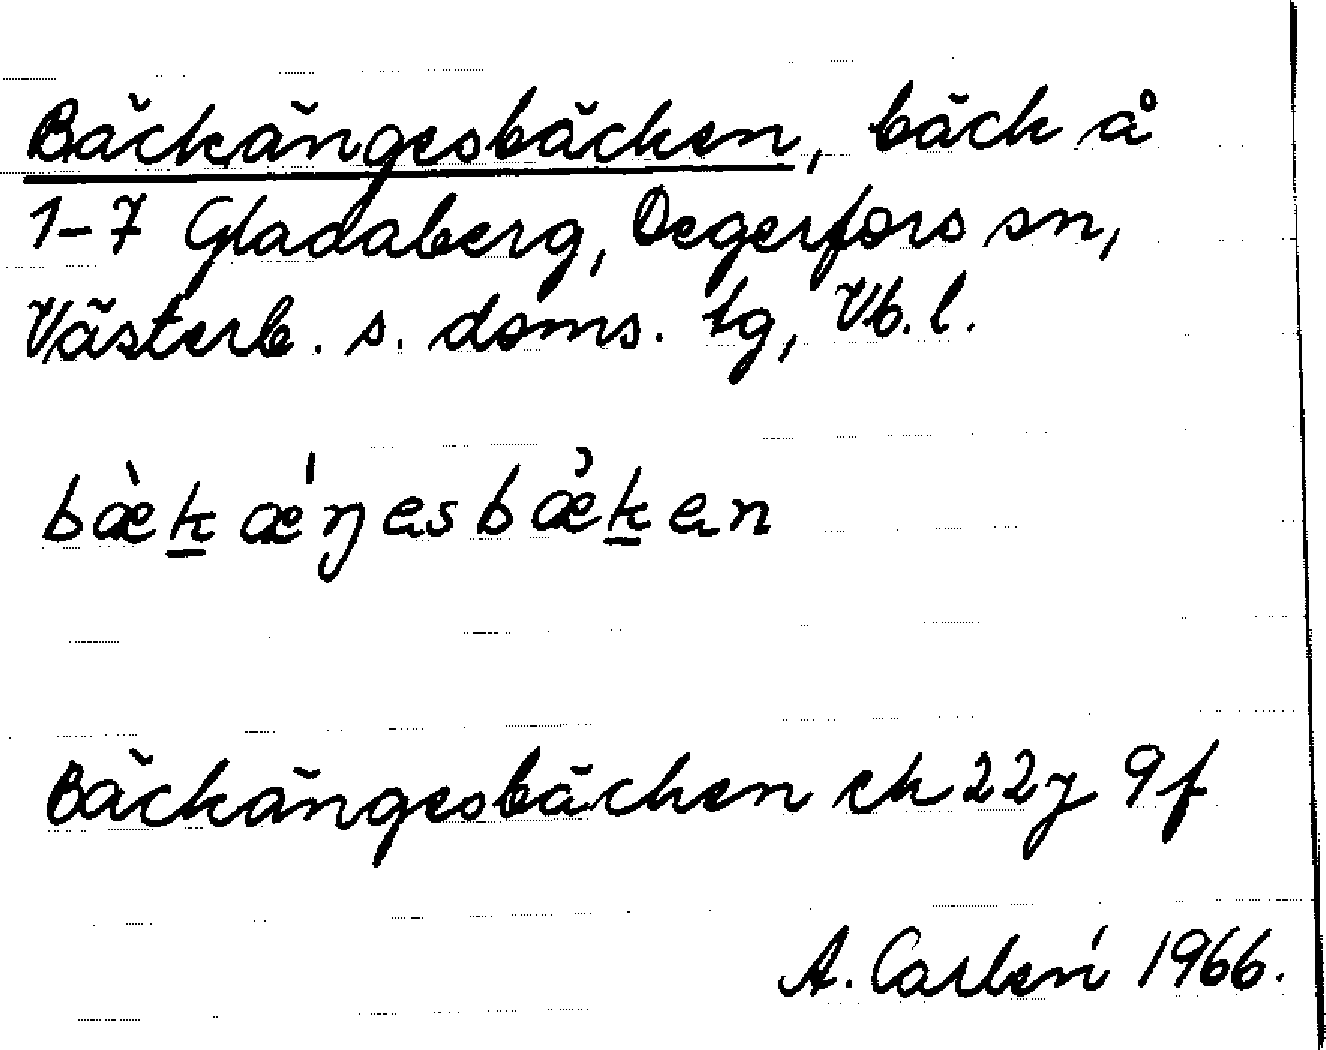 Bäckängesbäcken, bäck å
1-7 Gladaberg, Degerfors sn,
Västerb. s. doms. tg, Vb. l.
bæ̀k̲æ̍ŋesbæ̉k̲en
Bäckängesbäcken ek 22J 9f
A. Carlén 1966.